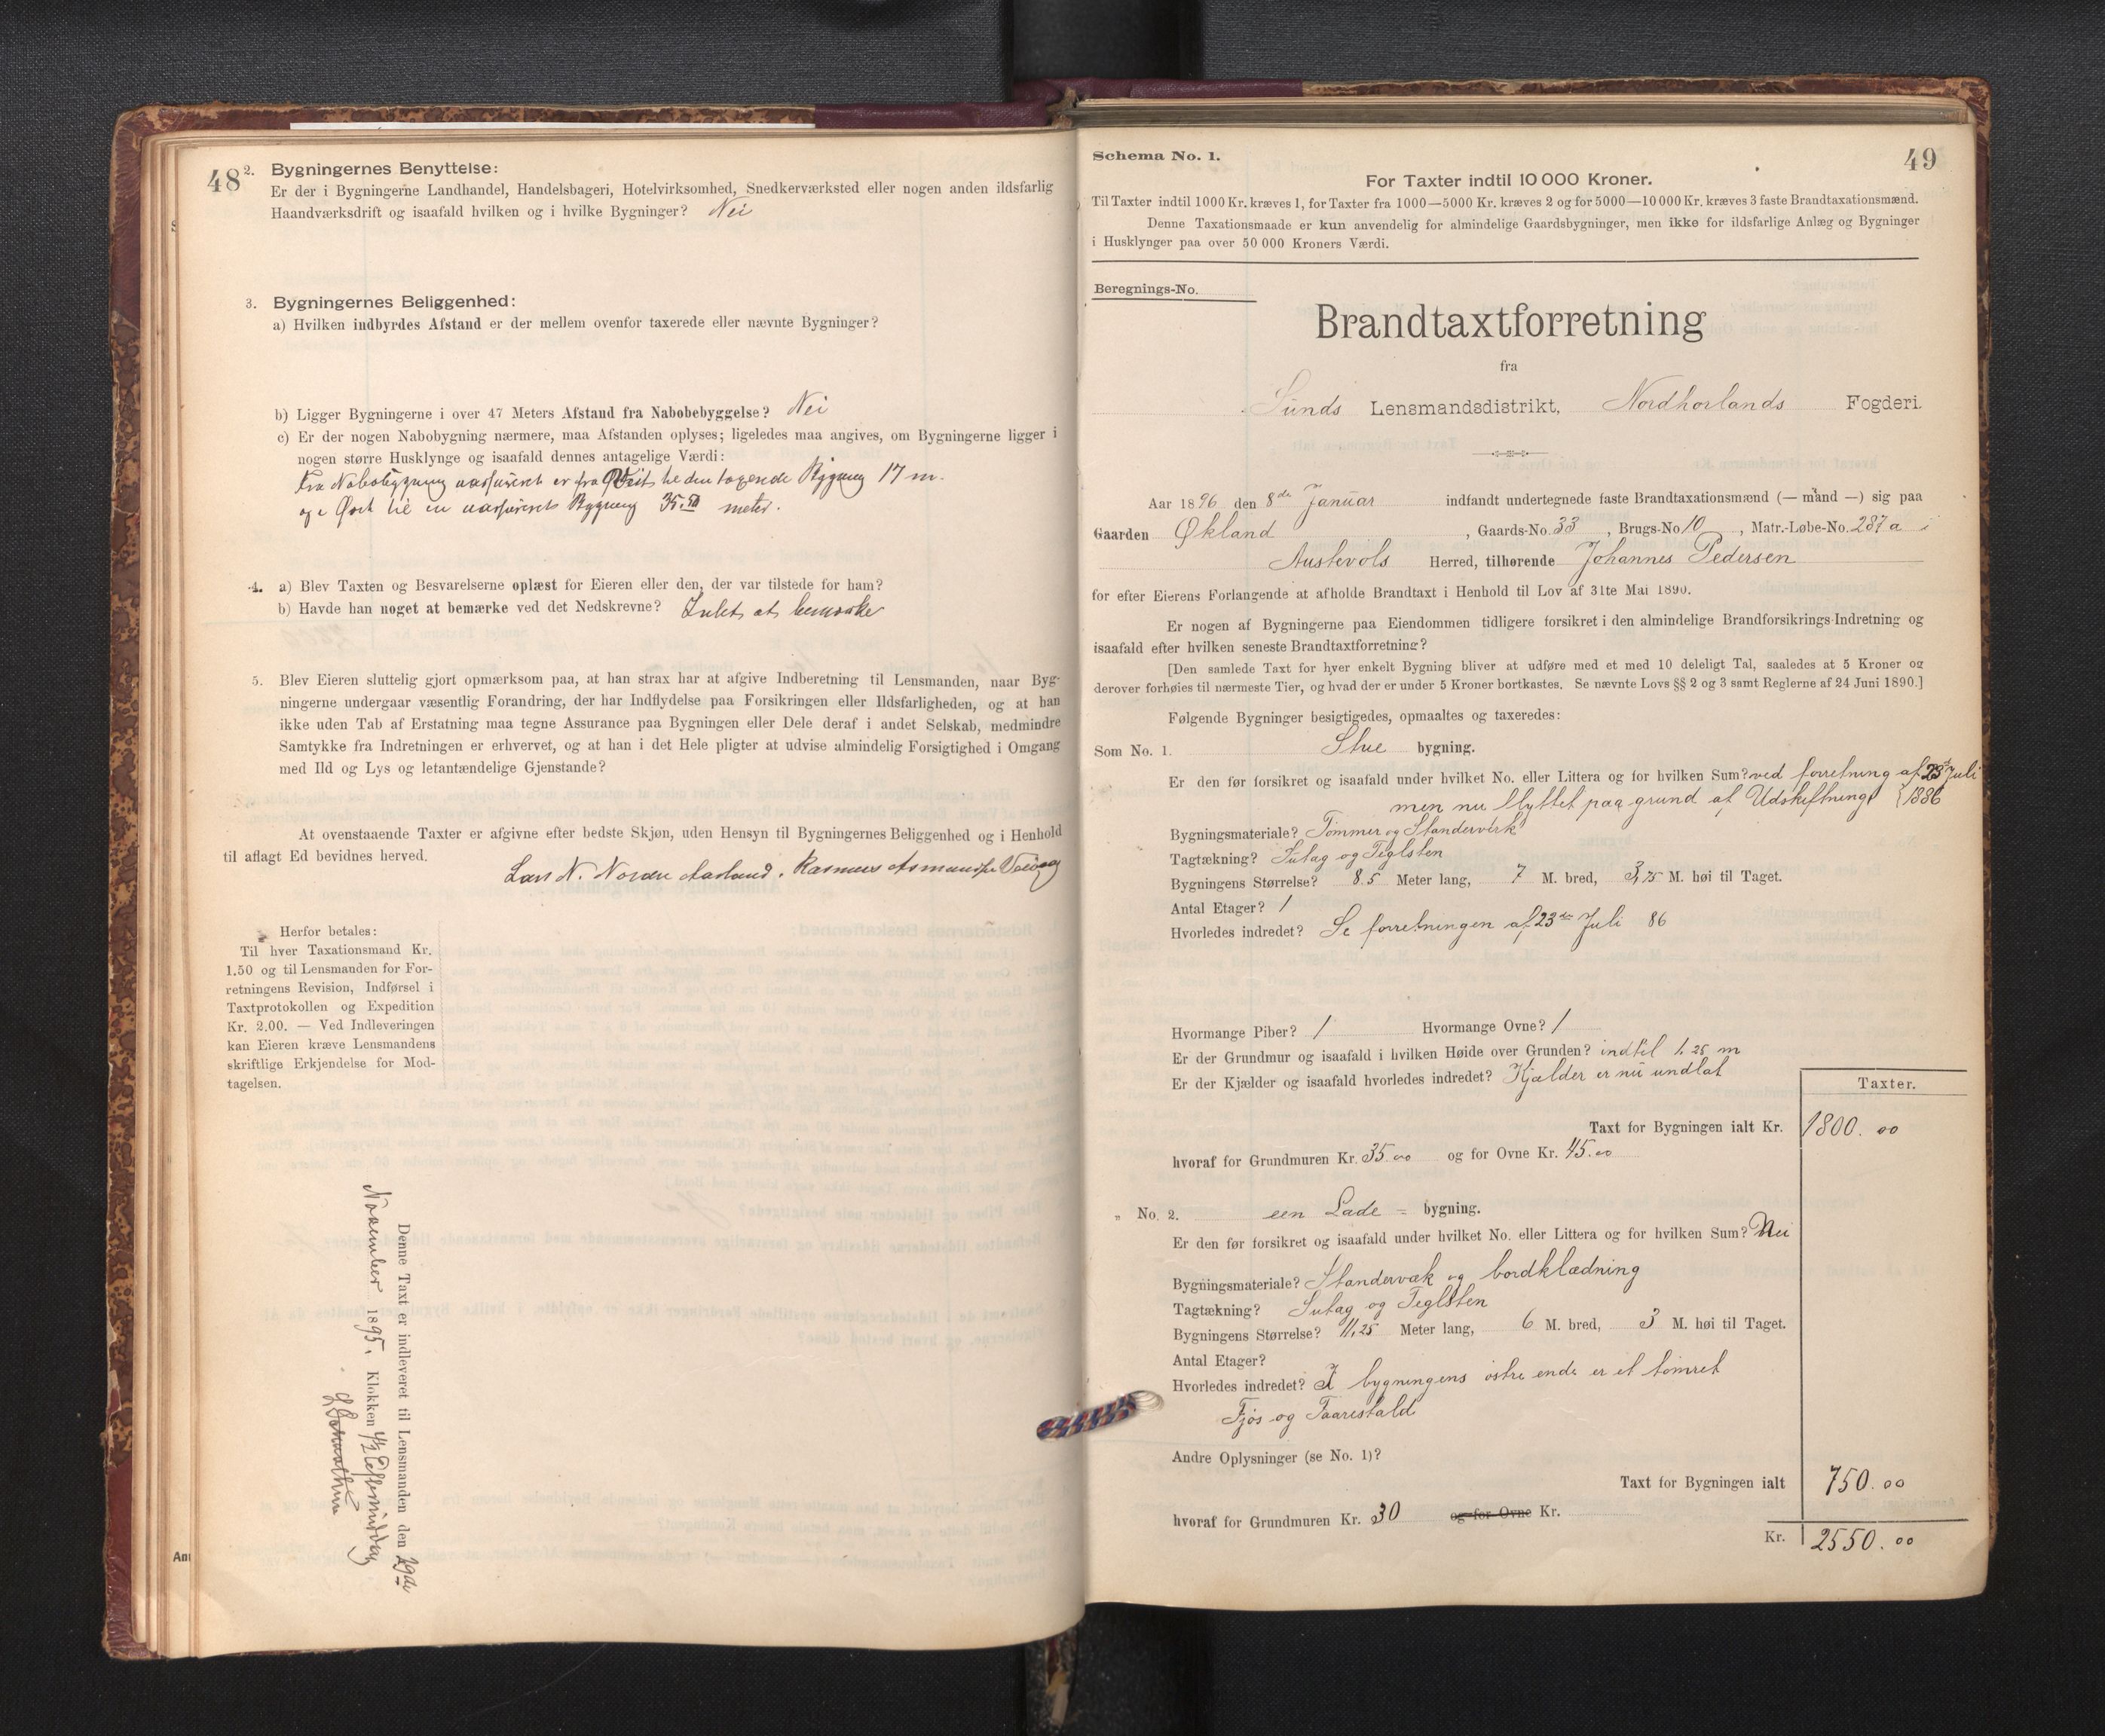 48
2. Bygningernes Benyttelse:
Er der i Bygningerne Landhandel, Handelsbageri, Hotelvirksomhed, Snedkerværksted eller nogen anden ildsfarlig
Haandværksdrift og isaafald hvilken og i hvilke Bygninger? Nei
3. Bygningernes Beliggenhed:
a) Hvilken indbyrdes Afstand er der mellem ovenfor taxerede eller nævnte Bygninger?
b) Ligger Bygningerne i over 47 Meters Afstand fra Nabobebyggelse? Nei
c) Er der nogen Nabobygning nærmere, maa Afstanden oplyses; ligeledes maa angives, om Bygningerne ligger i
nogen større Husklynge og isaafald dennes antagelige Værdi:
Fra Nabobygning uassureret er fra til den taxerede Bygning 17 m.
og i Øst til en uassureret Bygning 35.50 meter.
4. a) Blev Taxten og Besvarelserne oplæst for Eieren eller den, der var tilstede for ham?
b) Havde han noget at bemærke ved det Nedskrevne? Intet at bemærke
5. Blev Eieren sluttelig gjort opmærksom paa, at han strax har at afgive Indberetning til Lensmanden, naar Byg-
ningerne undergaar væsentlig Forandring, der har Indflydelse paa Forsikringen eller Ildsfarligheden, og at han
ikke uden Tab af Erstatning maa tegne Assurance paa Bygningen eller Dele deraf i andet Selskab, medmindre
Samtykke fra Indretningen er erhvervet, og at han i det Hele pligter at udvise almindelig Forsigtighed i Omgang
med Ild og Lys og letantændelige Gjenstande?
At ovenstaaende Taxter er afgivne efter bedste Skjøn, uden Hensyn til Bygningernes Beliggenhed og i Henhold
til aflagt Ed bevidnes herved.
Lars N. Aarland. Rasmus
Herfor betales:
Til hver Taxationsmand Kr.
1.50 og til Lensmanden for For-
retningens Revision, Indførsel i
Taxtprotokollen og Expedition
Kr. 2.00. — Ved Indleveringen
kan Eieren kræve Lensmandens
skriftlige Erkjendelse for Mod-
tagelsen.
Denne Taxt er indleveret til Lensmanden den 29de
November 1895. Klokken 4½ Eftermiddag
49
Schema No. 1.
For Taxter indtil 10 000 Kroner.
Til Taxter indtil 1000 Kr. kræves 1, for Taxter fra 1000—5000 Kr. kræves 2 og for 5000—10 000 Kr. kræves 3 faste Brandtaxationsmænd.
Denne Taxationsmaade er kun anvendelig for almindelige Gaardsbygninger, men ikke for ildsfarlige Anlæg og Bygninger
i Husklynger paa over 50 000 Kroners Værdi.
Beregnings-No.
Brandtaxtforretning
fra
Sunds Lensmandsdistrikt, Nordhorlands Fogderi.
Aar 1896 den 8de Januar indfandt undertegnede faste Brandtaxationsmænd (— mand —) sig paa
Gaarden Økland, Gaards-No. 33, Brugs-No 10, Matr.-Løbe-No. 287 a i
Austevols Herred, tilhørende Johannes Pedersen
for efter Eierens Forlangende at afholde Brandtaxt i Henhold til Lov af 31te Mai 1890.
Er nogen af Bygningerne paa Eiendommen tidligere forsikret i den almindelige Brandforsikrings-Indretning og
isaafald efter hvilken seneste Brandtaxtforretning?
[Den samlede Taxt for hver enkelt Bygning bliver at udføre med et med 10 deleligt Tal, saaledes at 5 Kroner og
derover forhøies til nærmeste Tier, og hvad der er under 5 Kroner bortkastes. Se nævnte Lovs §§ 2 og 3 samt Reglerne af 24 Juni 1890.]
Følgende Bygninger besigtigedes, opmaaltes og taxeredes:
Som No. 1. Stue bygning.
Er den før forsikret og isaafald under hvilket No. eller Littera og for hvilken Sum? ved forretning af 23 Juli
men nu flyttet paa grund af Udskiftning 1886
Bygningsmateriale? Tømmer og Standerverk
Tagtækning? Sutag og Teglsten
Bygningens Størrelse? 8.5 Meter lang, 7 M. bred, 3,75 M. høi til Taget.
Antal Etager? 1
Hvorledes indredet? Se forretningen af 23de Juli 86
Hvormange Piber? 1 Hvormange Ovne? 1
Er der Grundmur og isaafald i hvilken Høide over Grunden? indtil 1.25 m
Er der Kjælder og isaafald hvorledes indredet? Kjælder er nu undlat
Taxter.
Taxt for Bygningen ialt Kr. 1800.00
hvoraf for Grundmuren Kr. 35.00 og for Ovne Kr. 45.00
„ No. 2. een Lade = bygning.
Er den før forsikret og isaafald under hvilket No. eller Littera og for hvilken Sum? Nei
Bygningsmateriale? Standervæk og bordklædning
Tagtækning? Sutag og Teglsten
Bygningens Størrelse? 11,25 Meter lang, 6 M. bred, 3 M. høi til Taget.
Antal Etager?
Hvorledes indredet? I bygningens østre ende er et tømret
Fjøs og Faarestald
Andre Oplysninger (se No. 1)?
Taxt for Bygningen ialt 750.00
hvoraf for Grundmuren Kr. 30 og for Ovne Kr.
Kr. 2550.00